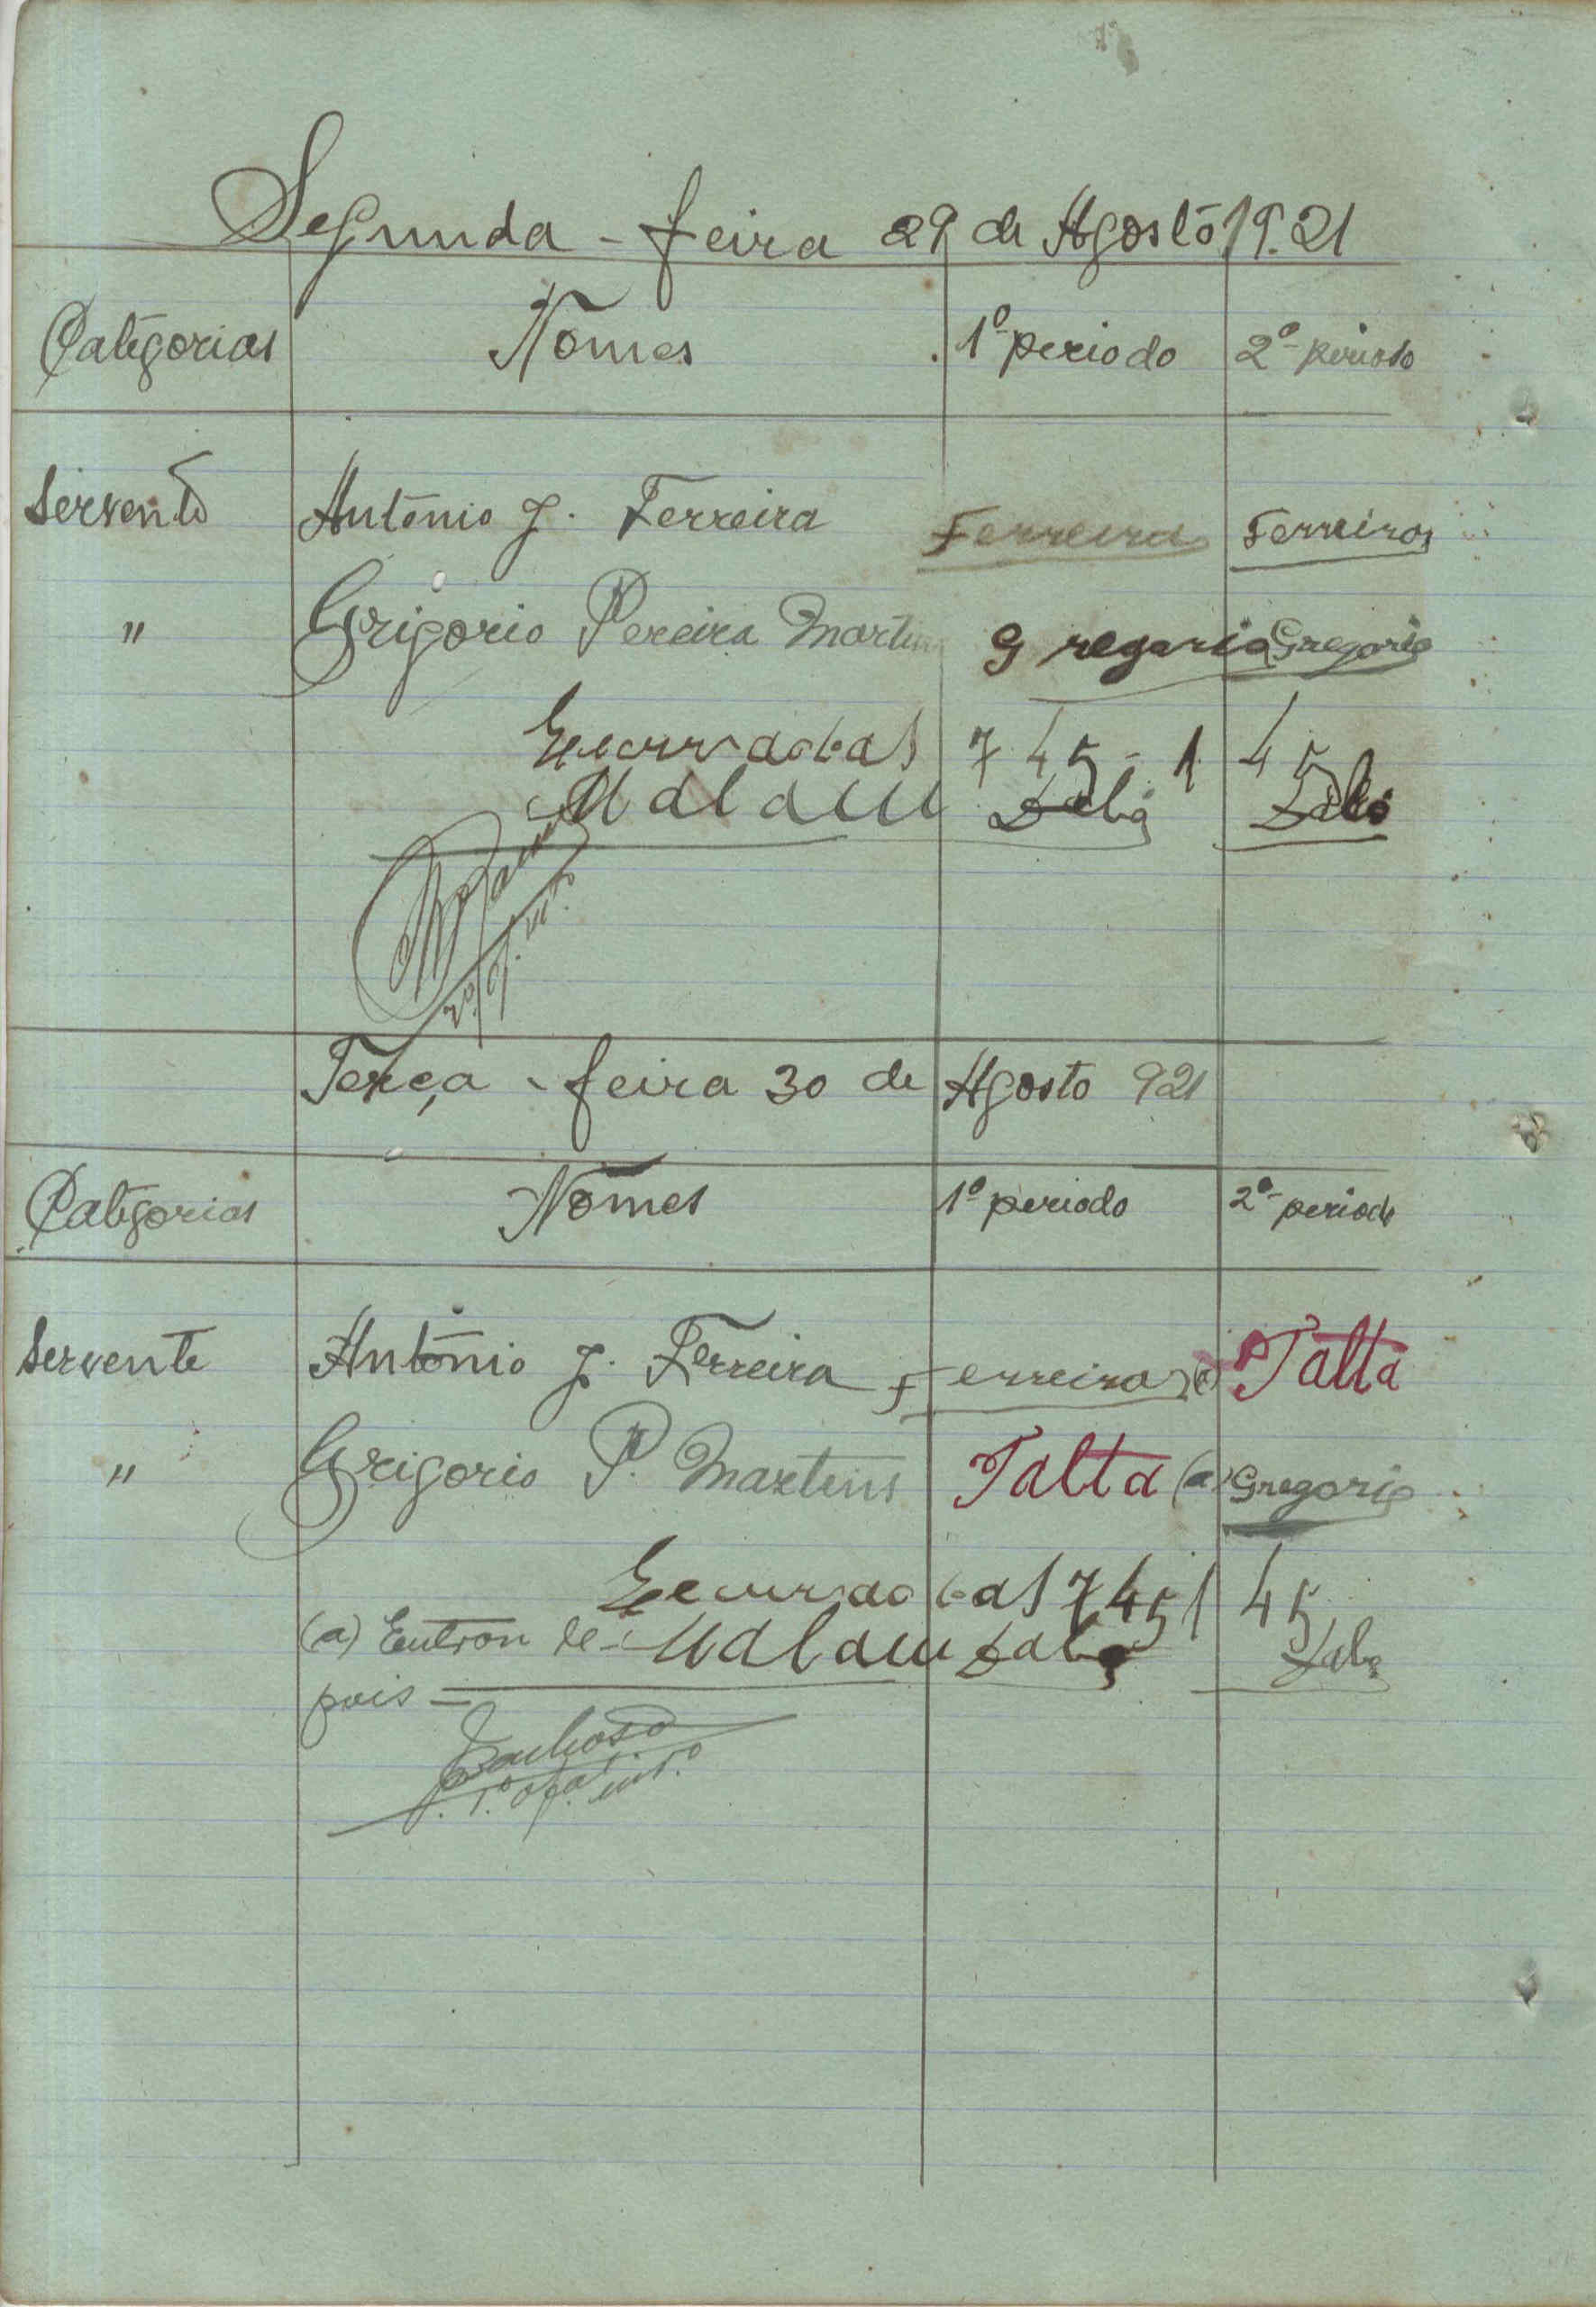 Segunda-feira 29 de Agosto 1921
Categorias Nomes 1º periodo 2º periodo
Servente António J. Ferreira Ferreira Ferreira
" Grigorio Pereira Martins Gregorio Gregorio
7 45 - 1 45
Malam
Terça-feira 30 de Agosto 921
Categorias Nomes 1º periodo 2º periodo
Servente António J. Ferreira Ferreira Falta
" Grigorio P. Martins Falta (a) Gregorio
7 45 1 45
(a) Entrou de- Malam
pois